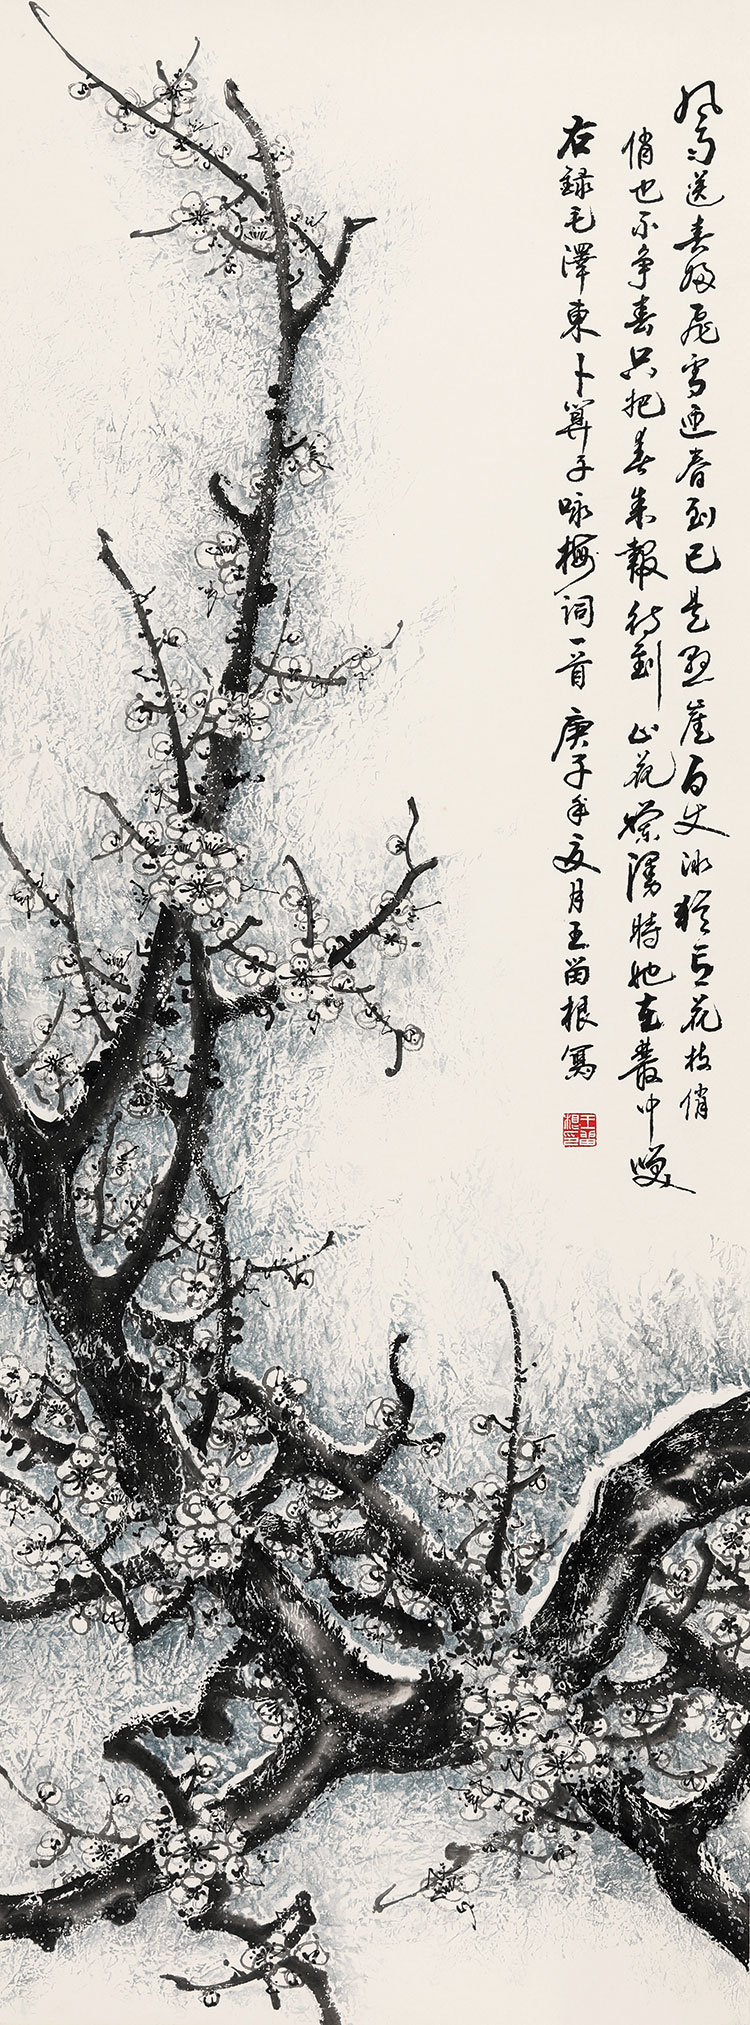 风雨送春归飛雪迎春到已是懸崖百丈冰犹有花枝俏
俏也不争春只把春来報待到山花爛漫時她在叢中咲
右録毛澤東卜算子咏梅词一首庚子年夏月王苗根寫
王苗根印